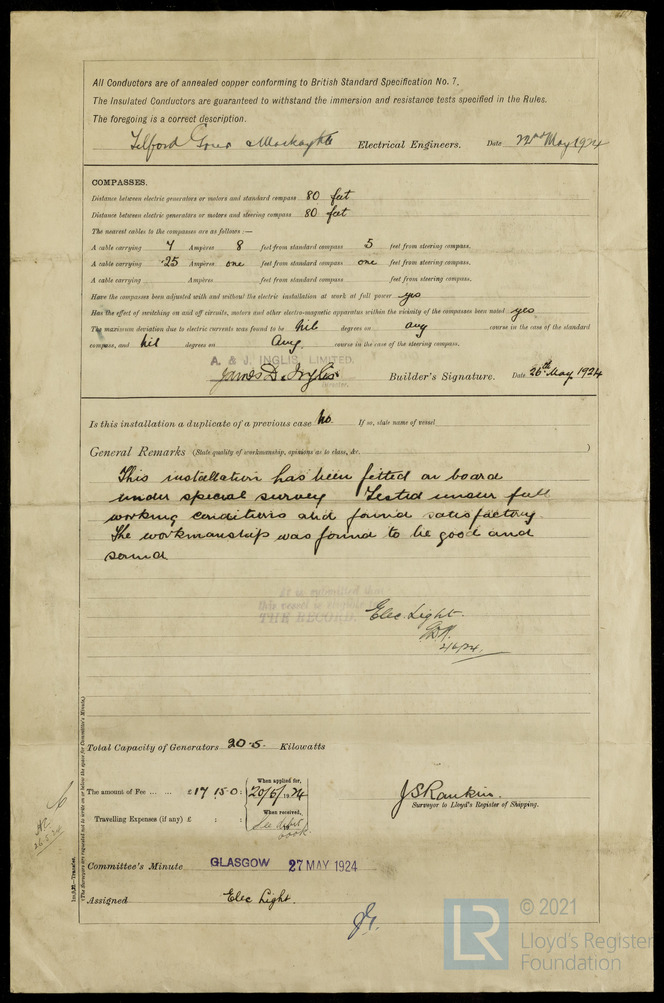 All Conductors are of annealed copper conforming to British Standard Specification No. 7.
The Insulated Conductors are guaranteed to withstand the immersion and resistance tests specified in the Rules.
The foregoing is a correct description.
Telford Grier & Mackay Electrical Engineers. Date 22nd May 1924
COMPASSES.
Distance between electric generators or motors and standard compass 80 feet
Distance between electric generators or motors and steering compass 80 feet
The nearest cables to the compasses are as follows:—
A cable carrying 4 Ampères 8 feet from standard compass 5 feet from steering compass.
A cable carrying .25 Ampères one feet from standard compass one feet from steering compass.
A cable carrying Ampères feet from standard compass feet from steering compass.
Have the compasses been adjusted with and without the electric installation at work at full power yes
Has the effect of switching on and off circuits, motors and other electro-magnetic apparatus within the vicinity of the compasses been noted yes
The maximum deviation due to electric currents was found to be nil degrees on any course in the case of the standard
compass, and nil degrees on any course in the case of the steering compass.
A. & J. INGLIS, LIMITED.
James D. Inglis Builder's Signature. Date 26th May 1924
Director.
Is this installation a duplicate of a previous case no If so, state name of vessel
General Remarks (State quality of workmanship, opinions as to class, &c. )
This installation has been fitted on board
under special survey Tested under full
working conditions and found satisfactory.
The workmanship was found to be good and
sound
It is submitted that
this vessel is eligible
THE RECORD.
Elec. Light.
2/6/24.
Total Capacity of Generators 20.5 Kilowatts
The amount of Fee ... ... £ 17 : 15 : 0 : When applied for, 20/5/1924
When received,
Travelling Expenses (if any) £ : :
J S Rankin.
Surveyor to Lloyd's Register of Shipping.
Committee's Minute GLASGOW 27 MAY 1924
Assigned Elec Light.
Im.3.23.—Transfer.
(The Surveyors are requested not to write on or below the space for Committee's Minute.)
LR
© 2021
Lloyd's Register
Foundation